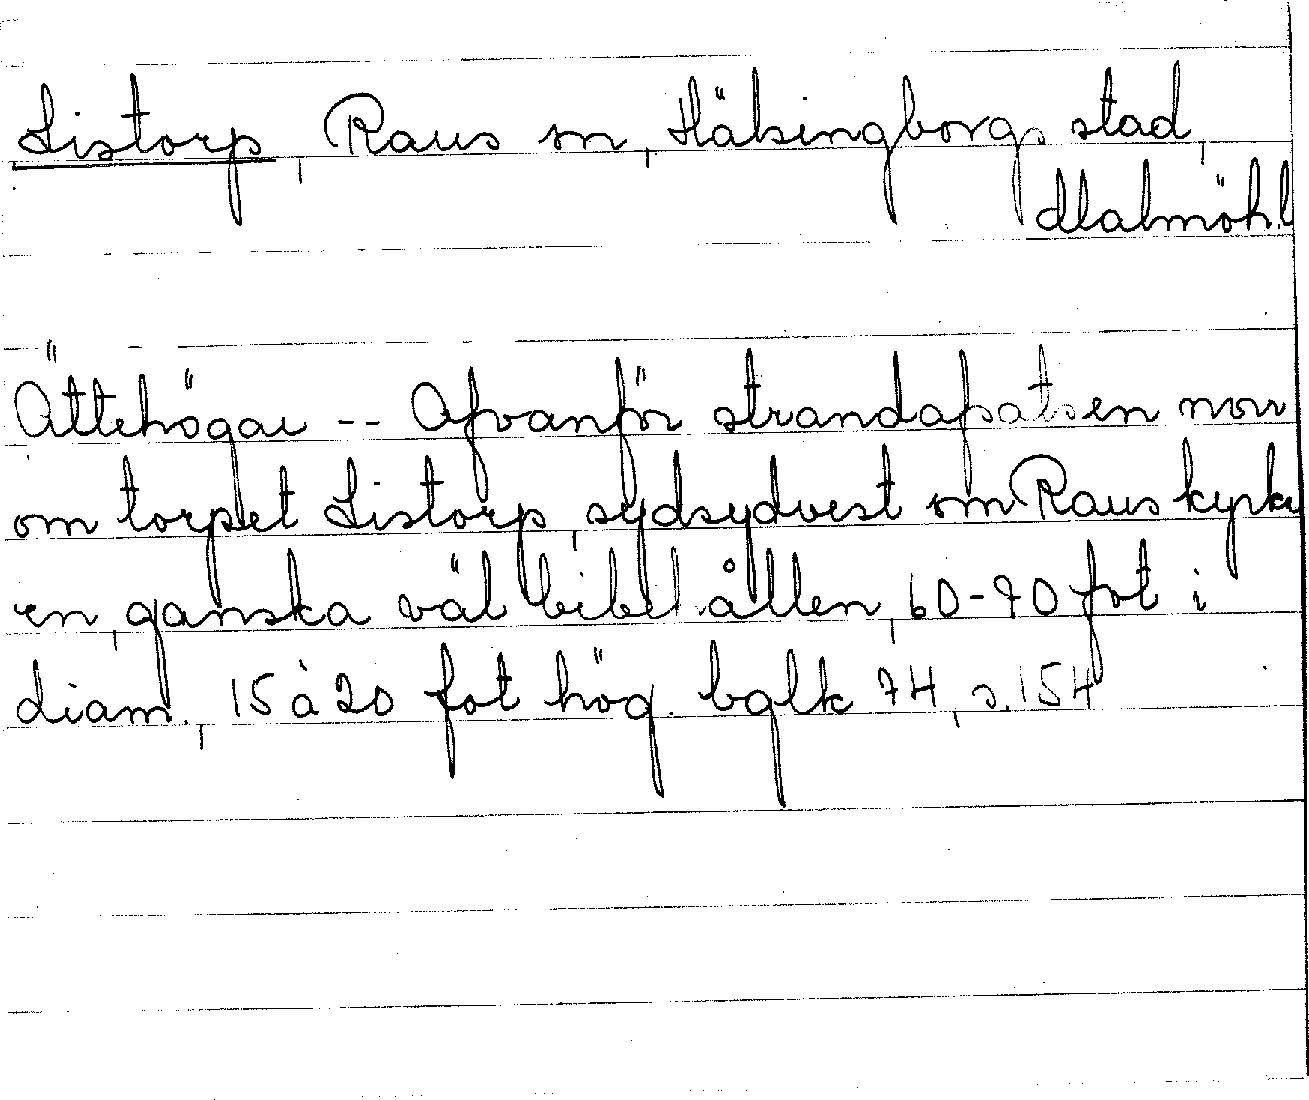 Listorp, Raus sn, Hälsingborgs stad,
Malmöhl
Ättehögar -- Ofvanför strandafsatsen norr
om torpet Listorp, sydsydvest om Raus kyrka
en, ganska väl bibehållen, 60-70 fot i
diam., 15 à 20 fot hög. bglk 74, s. 154